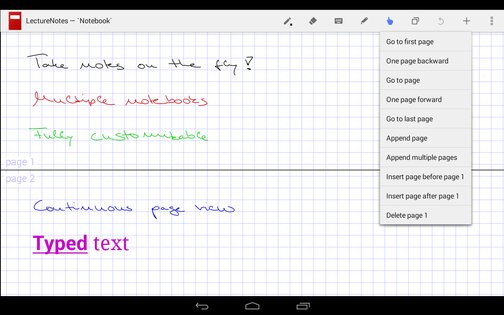 LectureNotes – `Notebook´
Take notes on the fly!
Multiple notebooks
Fully customizable
page 1
page 2
Continuous page view
Typed text
Go to first page
One page backward
Go to page
One page forward
Go to last page
Append page
Append multiple pages
Insert page before page 1
Insert page after page 1
Delete page 1